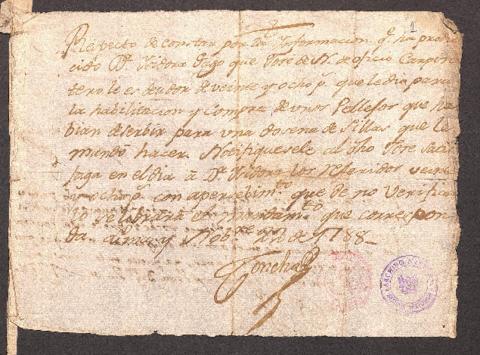 1
Respecto de constar por la Informacion q.e ha produ
cido D.n Isidoro Jugo que Jose de N. de oficio Carpin
tero le es deudor de veinte y ocho p.s que le dio para
la habilitacion y compra de unos Pellejos que ha
bian de serbir para una dosena de Sillas que le
mandó hacer. Notifiquesele al dho Jose Satis
faga en el dia à D.n Isidoro los referidos veinte
y ocho p.s con apercibim.to que de no verificar
lo se librará el mandam.to que correspon
da. Lima y Nob.re 22 de 1788
Concha